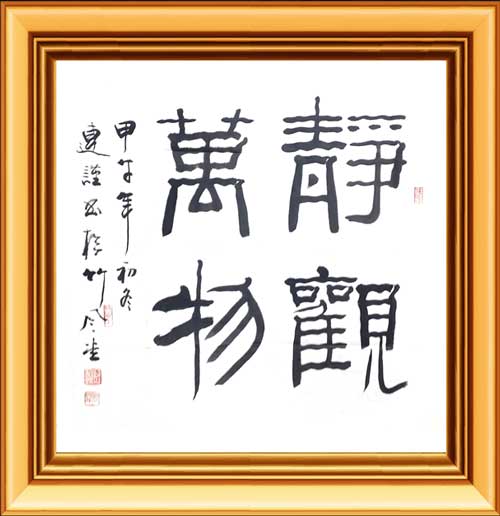 靜觀
萬物
甲午年初冬
謹書於竹風堂